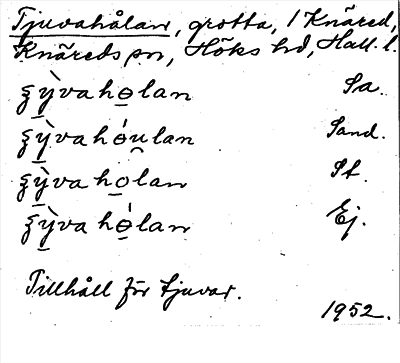 Tjuvahålan, grotta, 1 Knäred,
Knäreds sn, Höks hd, Hall. l.
ʒỳvahɵlan Sa.
ʒỳvahɵ́u̯lan Sand.
ʒỳvaho̲lan St.
ʒỳvahɵ́lan Ej.
Tillhåll för tjuvar.
1952.